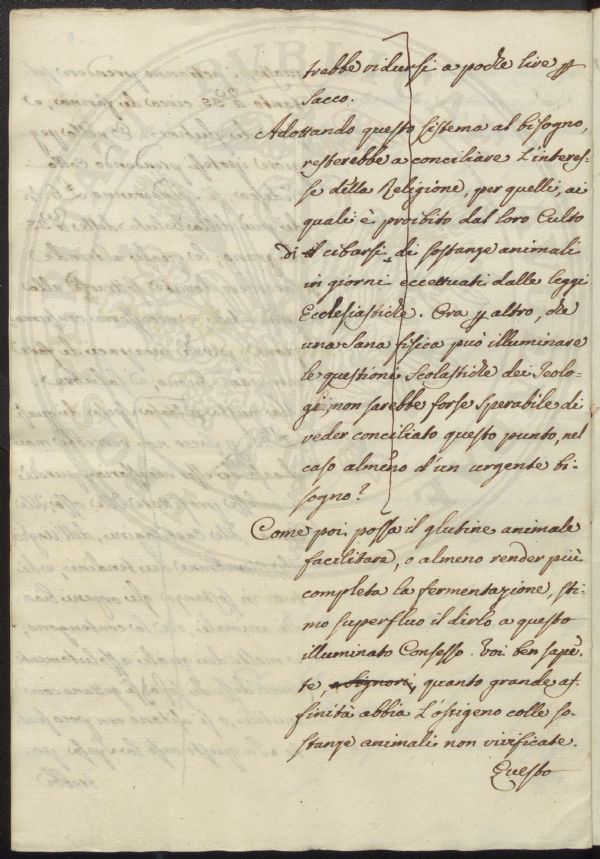 trebbe ridursi a poche lire p
sacco.
Adottando questo sistema al bisogno,
resterebbe a conciliare l'interes-
se della Religione, per quelli, ai
quali è proibito dal loro Culto
di cibarsi di sostanze animali
in giorni eccettuati dalle leggi
Ecclesiastiche. Ora p altro, che
una sana fisica può illuminare
le questioni scolastiche dei Teolo-
gi non sarebbe forse sperabile di
veder conciliato questo punto, nel
caso almeno d'un urgente bi-
sogno?
Come poi possa il glutine animale
facilitare, o almeno render più
completa la fermentazione, sti-
mo superfluo il dirlo a questo
illuminato Consesso. Voi ben sape-
te, o Signori, quanto grande af-
finità abbia l'ossigeno colle so-
stanze animali non vivificate.
Questo